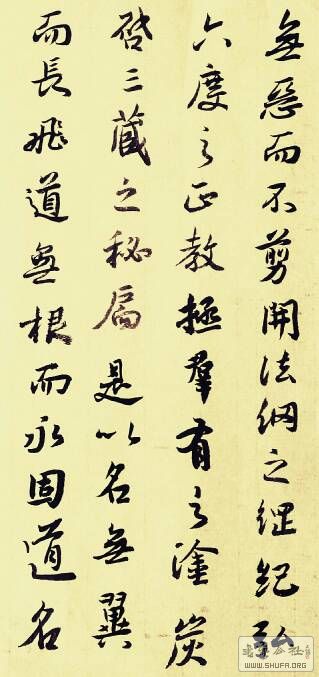 無惡而不剪開法網之綱紀弘
六度之正教拯羣有之塗炭
啓三藏之秘扃是以名無翼
而長飛道無根而永固道名
WWW.SHUFA.ORG